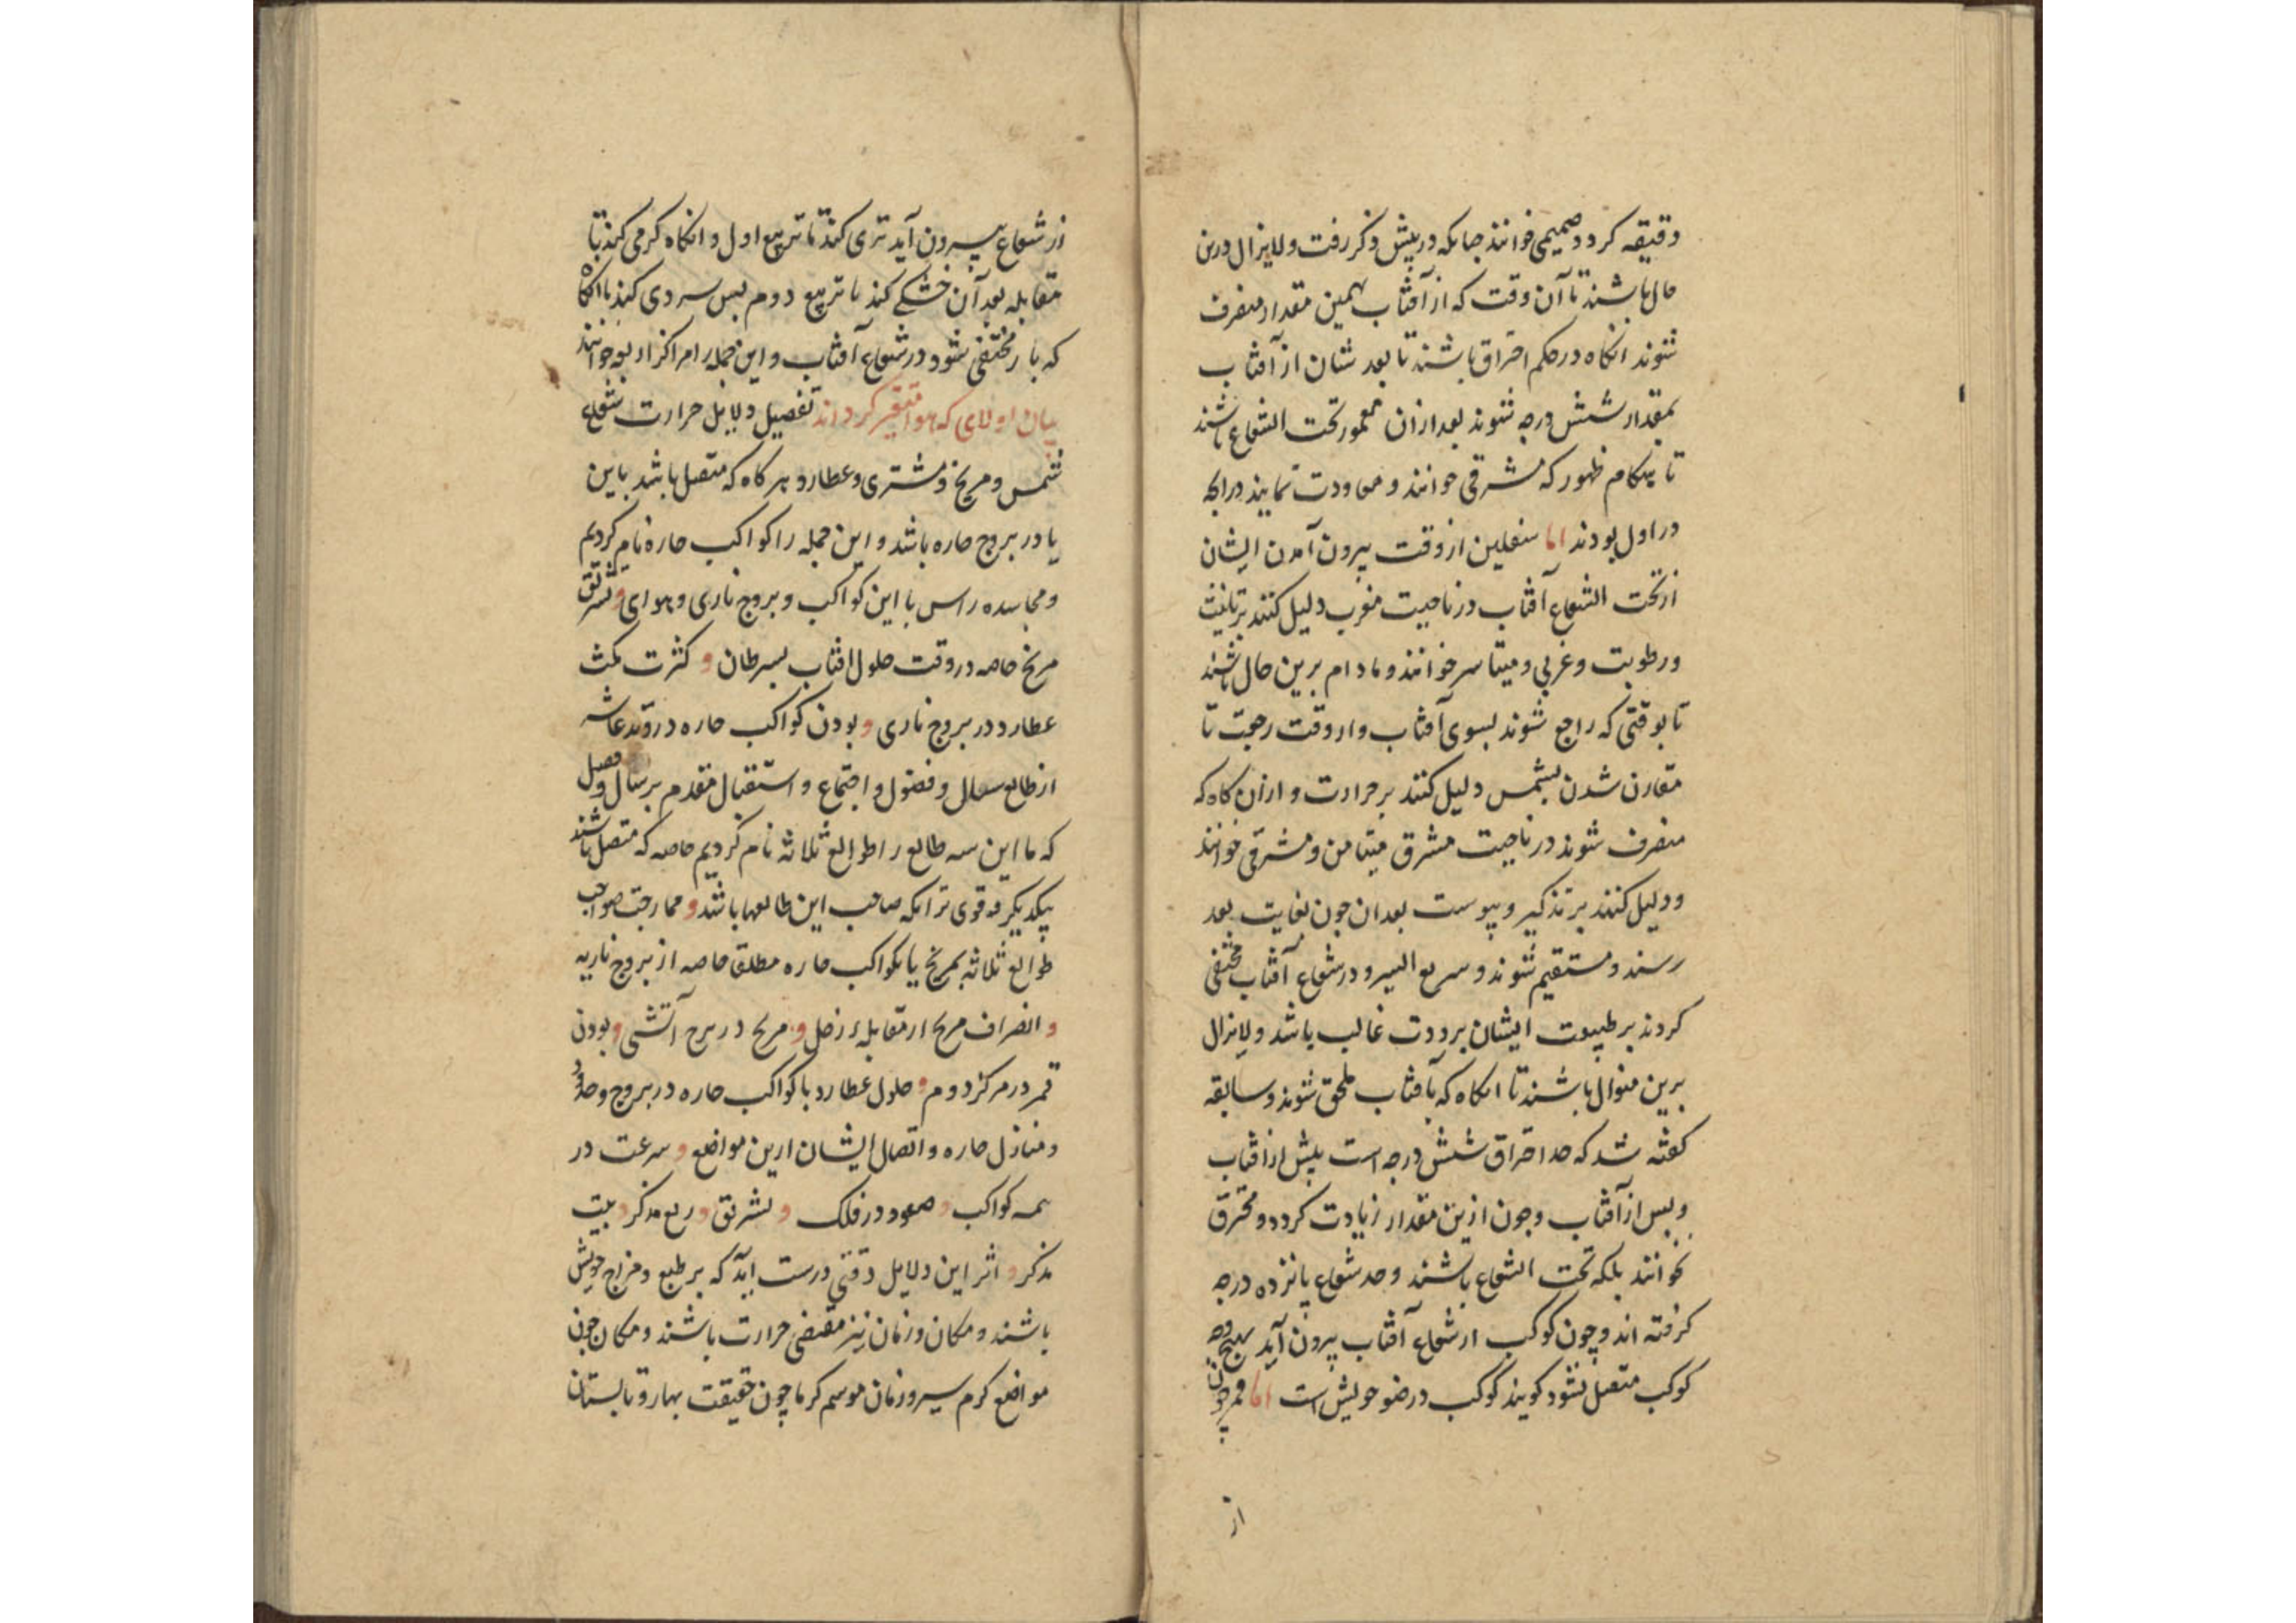 دقیقه کردد صمیمی خوانند جنانکه در پیش ذکر رفت و لایزال درین
حال باشند تا آن وقت که از آفتاب بهمین مقدار منصرف
شوند انکاه در حکم احتراق باشند تا بعد شان از آفتاب
بمقدار شش درجه شوند بعد ازان مغمور تحت الشعاع باشند
تا هنکام ظهور که مشرقی خوانند و معاودت نمایند درانجه
در اول بودند اما سفلین از وقت بیرون آمدن ایشان
از تحت الشعاع آفتاب در ناحیت مغرب دلیل کنند بر تانیث
و رطوبت و غربی و میتاسر خوانند و مادام برین حال باشند
تا بوقتی که راجع شوند بسوی آفتاب و از وقت رجعت تا
مقارن شدن بشمس دلیل کنند بر حرارت و ازان کاه که
منصرف شوند در ناحیت مشرق میتامن و مشرقی خوانند
و دلیل کنند بر تذکیر و یبوست بعد ان جون بغایت بعد
رسند و مستقیم شوند و سریع السیر و در شعاع آفتاب مختفی
کردند بر طبیعت ایشان برودت غالب باشد و لایزال
برین منوال باشند تا انکاه که بآفتاب ملحق شوند و سابقه
کفته شد که حد احتراق شش درجه است پیش از افتاب
و پس از آفتاب وجون ازین مقدار زیادت کردد محترق
نخوانند بلکه تحت الشعاع باشند و حد شعاع پانزده درجه
کرفته اند و چون کوکب از شعاع آفتاب بیرون آید بهیچ وجه
کوکب متصل نشود کویند کوکب در ضو خویش است اما قمر چون
از
از شعاع بیرون آید تری کند تا تربیع اول و انکاه کرمی کند تا
مقابله بعد آن خشکی کند تا تربیع دوم پس سردی کند تا انکاه
که باز مختفی شود در شعاع آفتاب و این جمله را مراکز اربعه خوانند
بیان اولای که هوا متغیر کرداند تفصیل دلایل حرارت شعاع
شمس و مریخ و مشتری و عطارد هر کاه که متصل باشد باین
یا در بروج حاره باشد و این جمله را کواکب حاره نام کردیم
و مجاسده راس با این کواکب و بروج ناری و هوای و تشریق
مریخ خاصه در وقت حلول افتاب بسرطان و کثرت مکث
عطارد در بروج ناری و بودن کواکب حاره در وتد عاشر
از طالع سال و فصول و اجتماع و استقبال مقدم بر سال و فصل
که ما این سه طالع را طوالع ثلاثه نام کردیم خاصه که متصل باشند
بیکدیکر و قوی تر انکه صاحب این طالعها باشد و ممازجت صواحب
طوالع ثلاثه بمریخ یا بکواکب حاره مطلق خاصه از بروج ناریه
و انصراف مریخ از مقابله زحل و مریخ در برج آتشی و بودن
قمر در مرکز دوم و حلول عطارد با کواکب حاره در بروج و حدود
و منازل حاره و اتصال ایشان ازین مواضع و سرعت در
همه کواکب و صعود در فلک و تشریق و ربع مذکر و بیت
مذکر و اثر این دلایل وقتی درست اید که بر طبع و مزاج خویش
باشند و مکان و زمان نیز مقتضی حرارت باشند و مکان جون
مواضع کرم سیر و زمان موسم کرما چون حقیقت بهار و تابستان